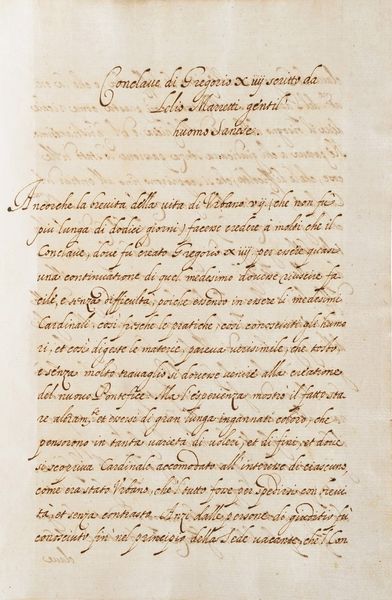 Conclave di Gregorio Xiiij scritto da
Lelio Maretti gentil'
huomo Sanese.
Ancorche la breuità della vita di Vrbano vij (che non fù
più lunga di dodici giorni) facesse credere à molti che il
Conclaue, doue fu creato Gregorio Xiiij per essere quasi
una continuatione di quel medesimo douesse riuscire fa
cile, e senza difficulta, poiche essendo in essere li medesimi
Cardinali, così fresche le pratiche, così conosciuti gli humo
ri, et così digeste le materie, pareua uerisimile, che tosto,
e senza molto trauaglio si douesse uenire alla creatione
del nuouo Pontefice. Ma l'esperienza mostrò il fatto sta
re altram.te et essersi di gran lunga ingannati coloro, che
pensorono in tanta varietà di voleri, et di fini, et doue
si scopriua Cardinale accomodato all'interesse di ciascuno,
come era stato Vrbano, che'l tutto fosse per spedirsi con breui
tà, et senza contrasto. Anzi dalle persone di giuditio fù
conosciuto fin nel principio della Sede uacante, che'l Con
claue